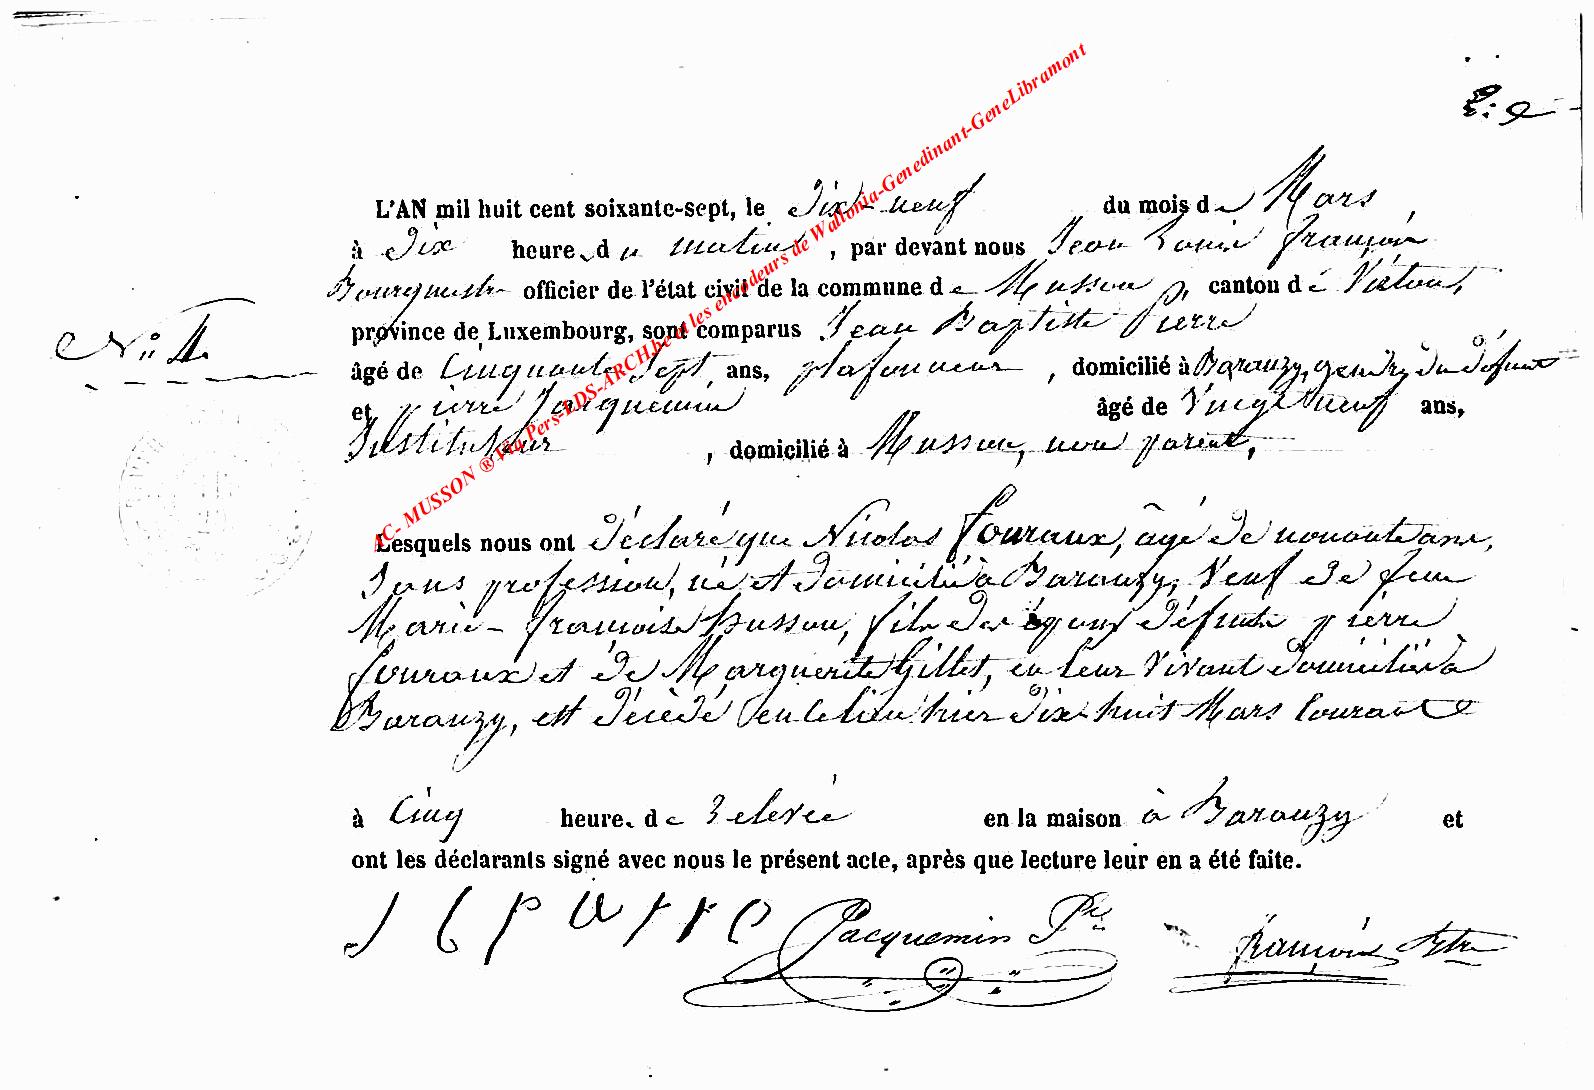 L'AN mil huit cent soixante-sept, le Dix neuf du mois de Mars,
à Dix heures du matin, par devant nous Jean Louis françois
Bourgmestre officier de l'état civil de la commune de Musson, canton de Virton,
province de Luxembourg, sont comparus Jean Baptiste Pierre
N° 4.
âgé de Cinquante Sept ans, plafonneur, domicilié à Baranzy, gendre du défunt
et pierre Jacquemin âgé de Vingt neuf ans,
Instituteur, domicilié à Musson, non parent,
AC- MUSSON ® Via Pers-LDS-ARCH.be et les encodeurs de Wallonia-Genedinant-GeneLibramont
Lesquels nous ont déclaré que Nicolas fouraux, âgé de nonante ans,
Sans profession, né et domicilié à Baranzy, Veuf de feue
Marie-françoise husson, fils des époux défunts pierre
fouraux et de Marguerite Gillet, en leur Vivant domiciliés à
Baranzy, est décédé en ce lieu hier dix-huit Mars Courant
à Cinq heures de relevée en la maison à Baranzy et
ont les déclarants signé avec nous le présent acte, après que lecture leur en a été faite.
J b p ierre Jacquemin Pre françois Btre